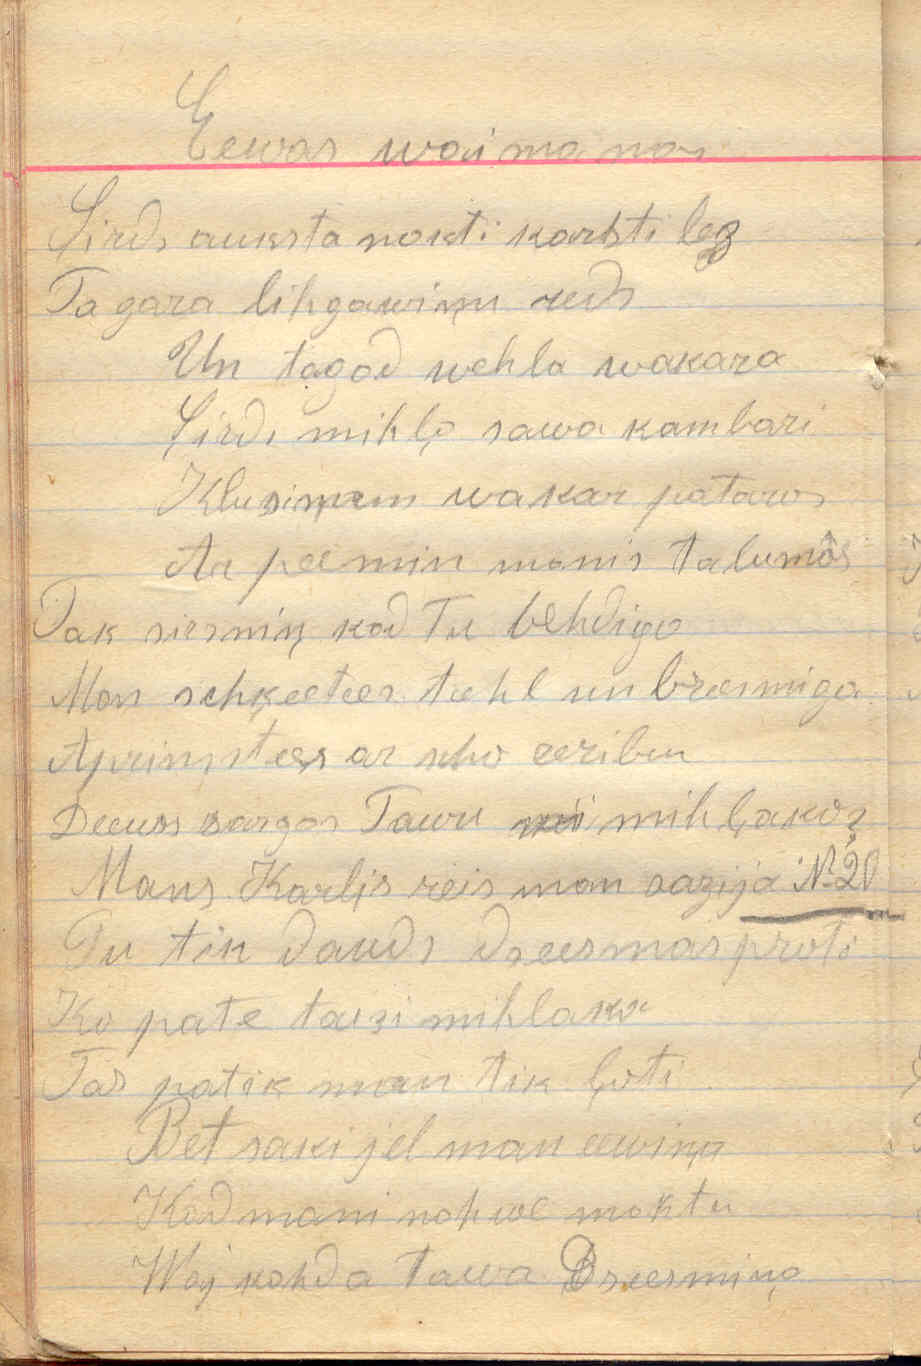 Eewas waimanas
Sirds auksta nakti karsti leg
Ta gara lihgawiņu reds
Un tagad wehla wakara
Sirds mihļo sawa kambari
Klusiņam wakar pataws
Ar peemin manis talumâs
Tak siesniņ kad Tu behdiga
Man schķeetees tuhl un breesmiga
Apriņstees ar scho eeribu
Deews sargas Tawu mihļako
Mans Karljs reis man sazija N 20
Tu tik dauds dseesmas proti
Ko pate taisi mihlako
Tas patik man tik ļoti
Bet saki jel man eewiņa
Kad mani nohwe mahtu
Waj kahda tawa Dseesmiņa